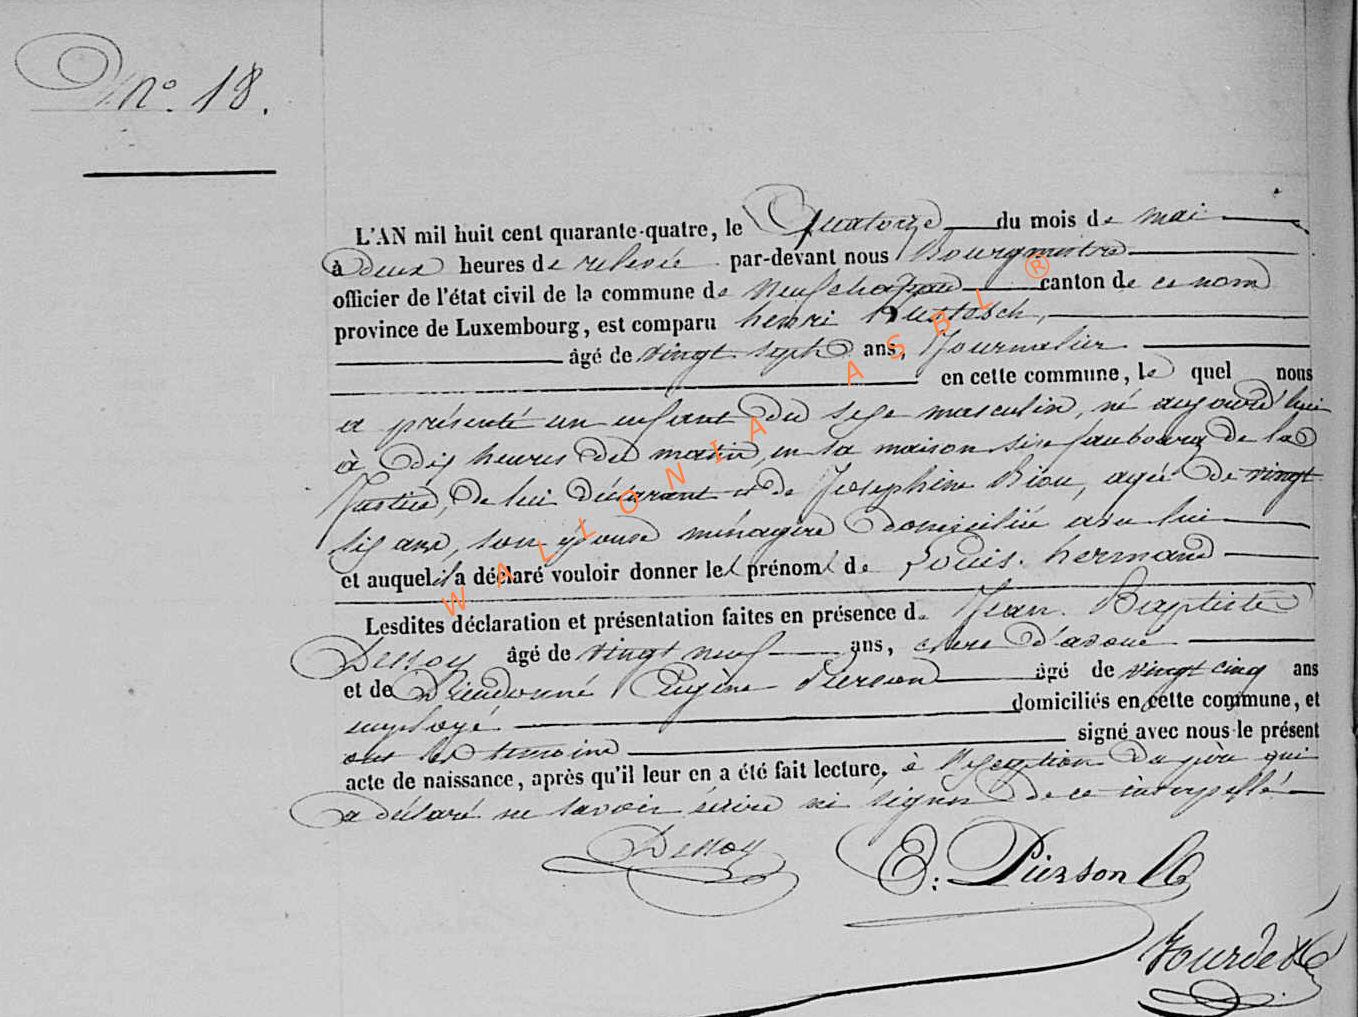 N°. 18.
L'AN mil huit cent quarante-quatre, le Quatorze du mois de mai
à deux heures de relevée par-devant nous Bourgmestre
officier de l'état civil de la commune de Neufchateau canton de ce nom
province de Luxembourg, est comparu henri
âgé de vingt sept ans, Journalier
en cette commune, le quel nous
a présenté un enfant du sexe masculin, né aujourd'hui
à dix heures du matin, en sa maison sise faubourg de la
Justice, de lui déclarant et de Josephine Biou, agée de vingt
six ans, son épouse ménagère domiciliée avec lui
et auquel il a déclaré vouloir donner les prénoms de Louis. hermand
Lesdites déclaration et présentation faites en présence de Jean. Baptiste
Dessoy âgé de vingt neuf ans, clerc d'avoué
et de Dieudonné Eugène Pierson âgé de vingt cinq ans
employé domiciliés en cette commune, et
ont les temoins signé avec nous le présent
acte de naissance, après qu'il leur en a été fait lecture, à l'exception du père qui
a déclaré ne savoir écrire ni signer de ce interpellé
Dessoy
E. Pierson
WALLONIA ASBL ®